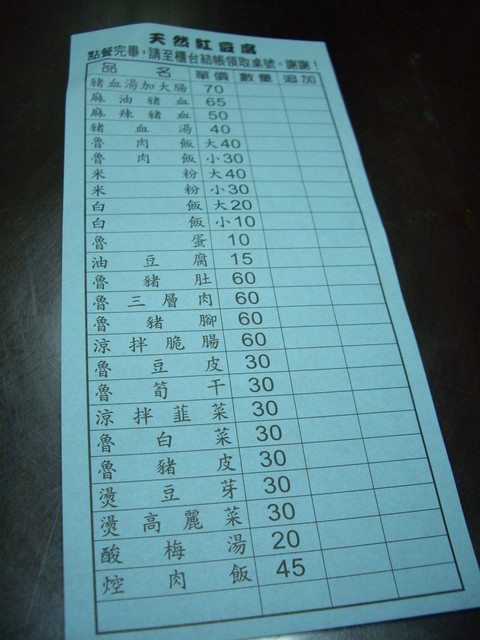 天然紅豆腐
點餐完畢，請至櫃台結帳領取桌號。謝謝！
品名 單價 數量 追加
豬血湯加大腸 70
麻油豬血 65
麻辣豬血 50
豬血湯 40
魯肉飯 大40
魯肉飯 小30
米粉 大40
米粉 小30
白飯 大20
白飯 小10
魯蛋 10
油豆腐 15
魯豬肚 60
魯三層肉 60
魯豬腳 60
涼拌脆腸 60
魯豆皮 30
魯筍干 30
涼拌韮菜 30
魯白菜 30
魯豬皮 30
燙豆芽 30
燙高麗菜 30
酸梅湯 20
焢肉飯 45